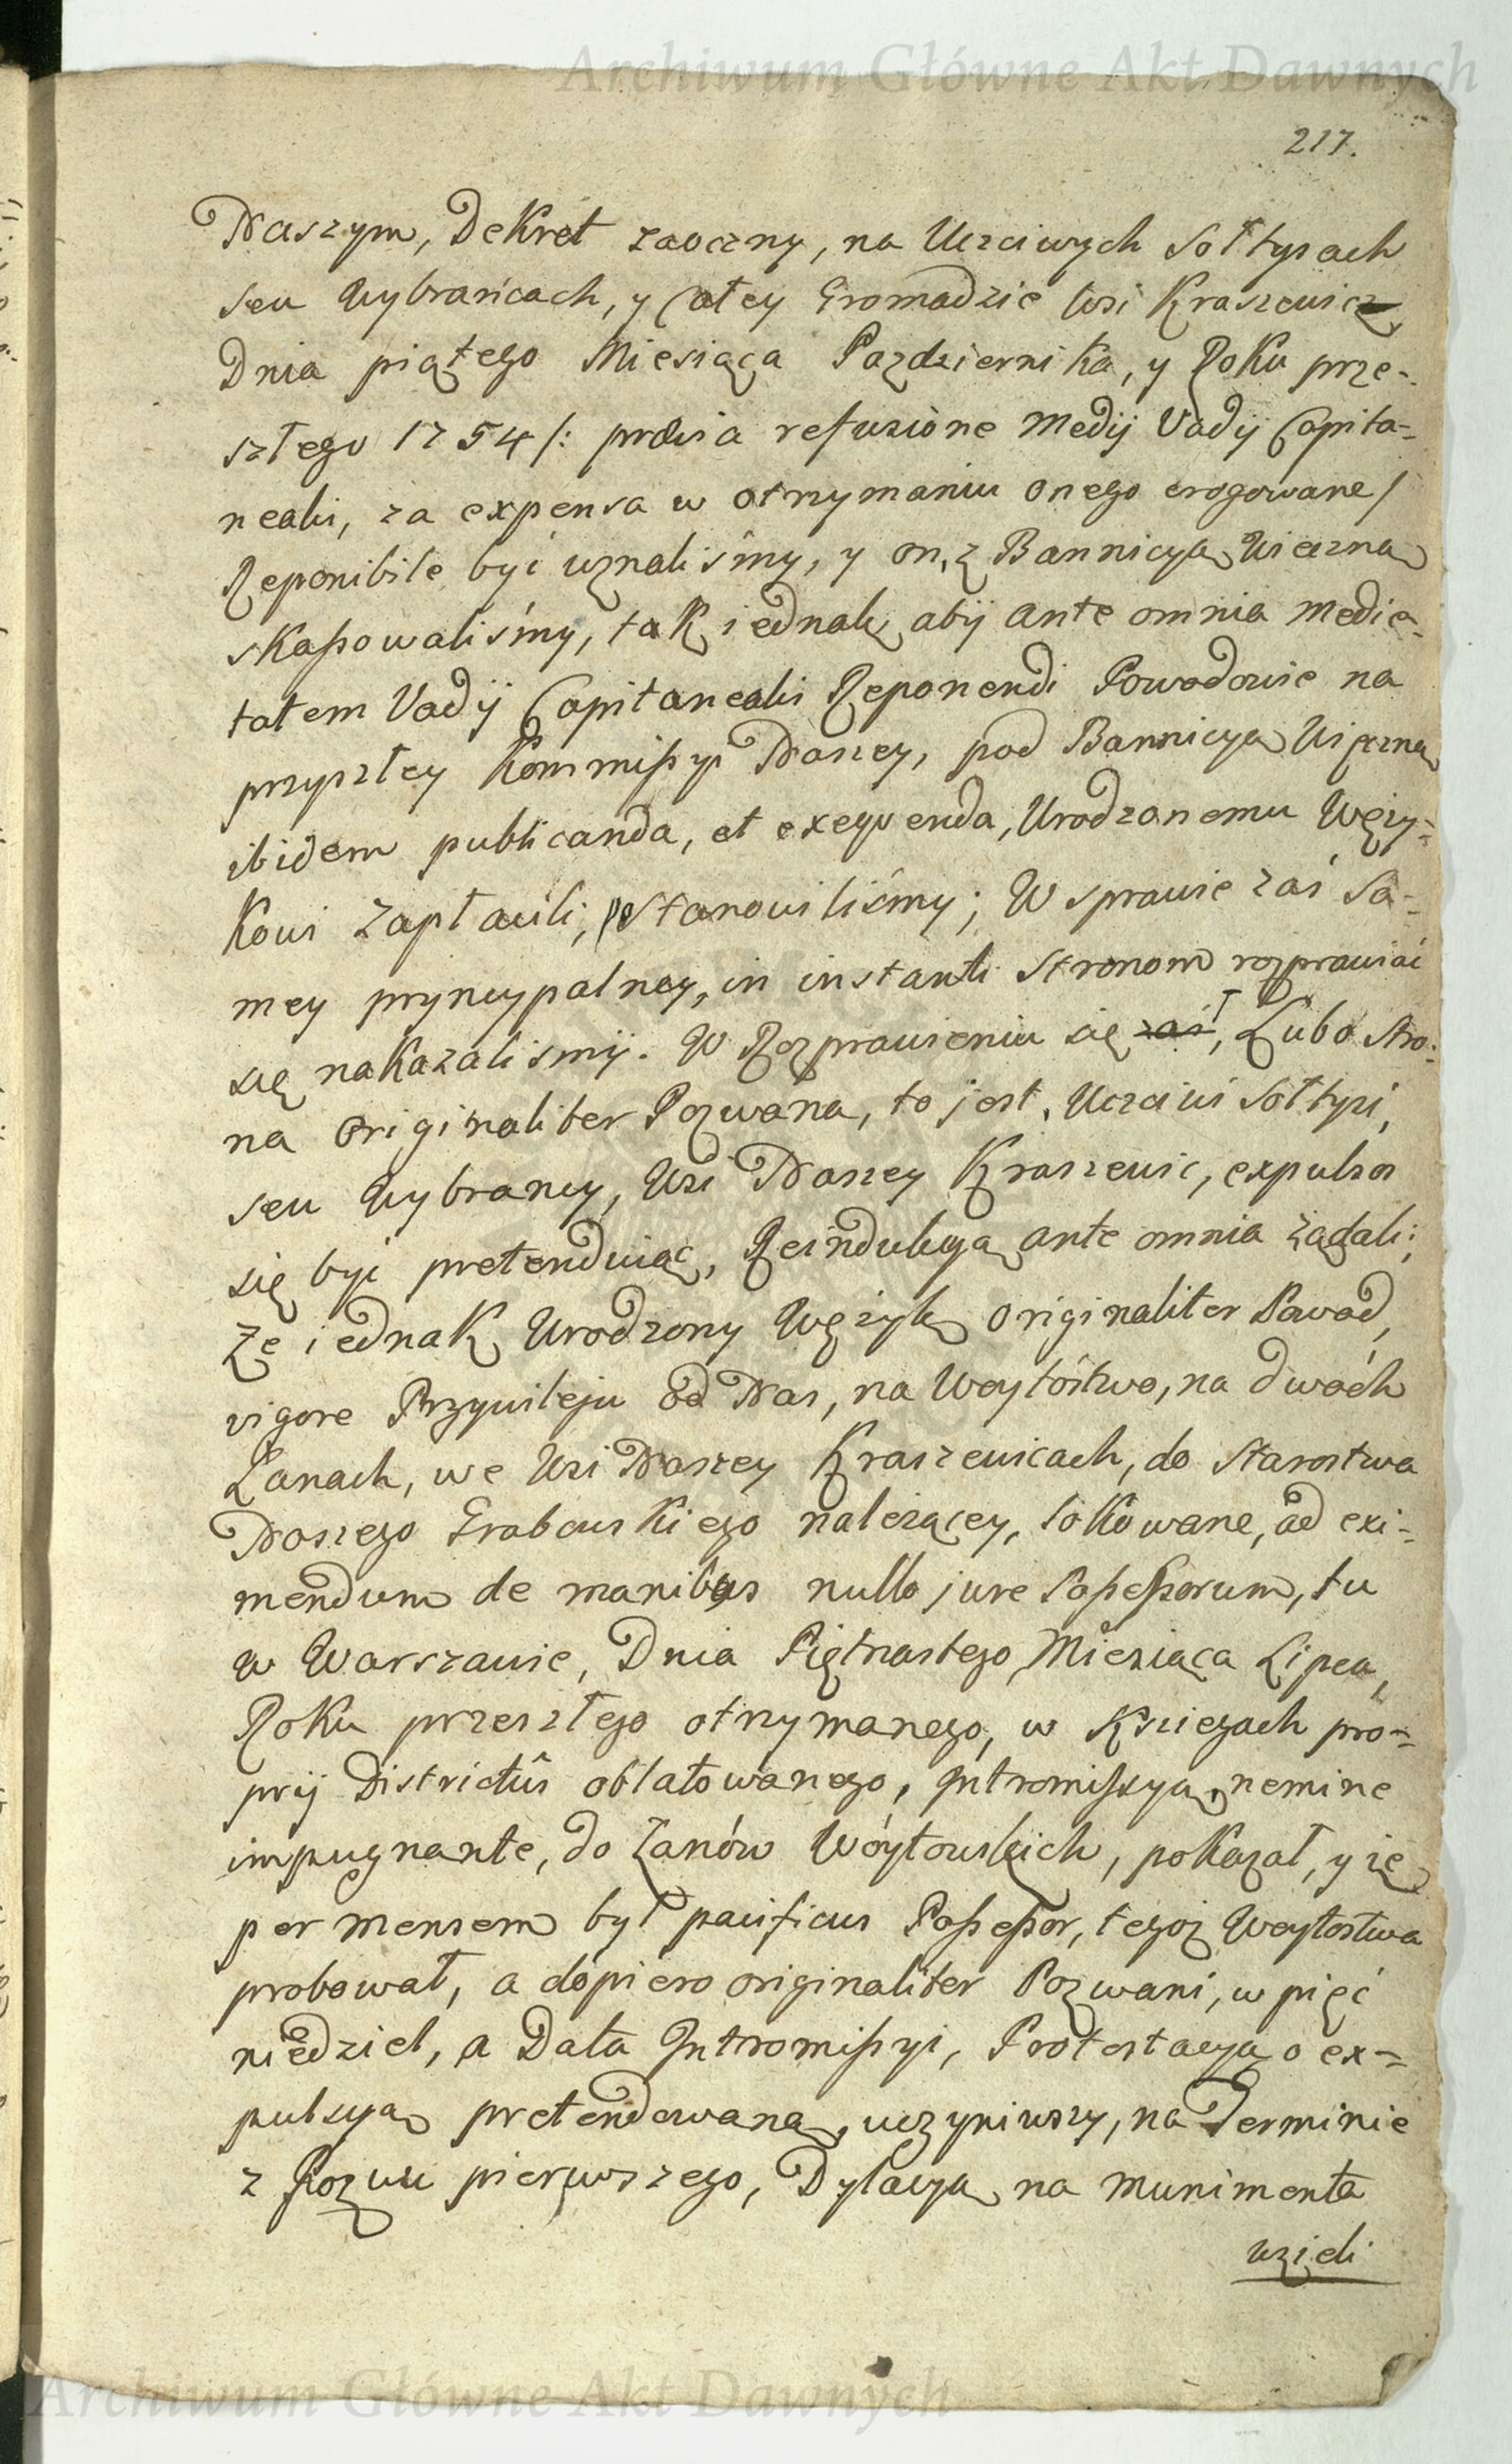 Archiwum Główne Akt Dawnych
217.
Naszym, Dekret zaoczny, na Uczciwych Sołtysach
seu Wybrańcach, y Całey Gromadzie Wsi Kraszewic
Dnia piątego Miesiąca Pazdziernika, y Roku prze-
szłego 1754 /: prævia refusione Medij Vadij Capita-
nealis, za expensa w otrzymaniu onego erogowane /
Reponibile być uznaliśmy, y on, z Bannicyą Wieczną
skassowaliśmy, tak iednak, abij ante omnia medie-
tatem Vadij Capitanealis Reponendi Powodowie na
przyszłey Kommissyi Naszey, pod Bannicyą Wieczną
ibidem publicanda, et exequenda, Urodzonemu Węży-
kowi zapłacili, postanowiliśmy; W sprawie zaś Sa-
mey pryncypalney, in instanti Stronom rozprawiać
się nakazaliśmij. W Rozprawieniu się zaś, Lubo Stro-
na Originaliter Pozwana, to jest, Uczciwi Sołtysi,
seu Wybrańcy, Wsi Naszey Kraszewic, expulsos
się być pretenduiąc, Reindukcyą ante omnia żądali;
Ze iednak Urodzony Wężyk Originaliter Powod,
vigore Przywileju od Nas, na Woytóstwo, na dwóch
Łanach, we Wsi Naszey Kraszewicach, do Starostwa
Naszego Grabowskiego należącey, lokowane, ad exi-
mendum de manibus nullo jure Possessorum, tu
w Warszawie, Dnia Piętnastego Miesiąca Lipca,
Roku przeszłego otrzymanego, w Xsięgach pro-
prij Districtûs oblatowanego, Intromissyą, nemine
impugnante, do Łanów Wóytowskich, pokazał, y że
per mensem był pacificus Possessor, tegoż Woytostwa
probował, a dopiero originaliter Pozwani, w pięć
niedziel, a Data Intromissyi, Protestacyą o ex-
pulsyą pretendowaną, uczyniwszy, na Terminie
z Pozwu pierwszego, Dylacyą na Munimenta
wzieli
Archiwum Główne Akt Dawnych